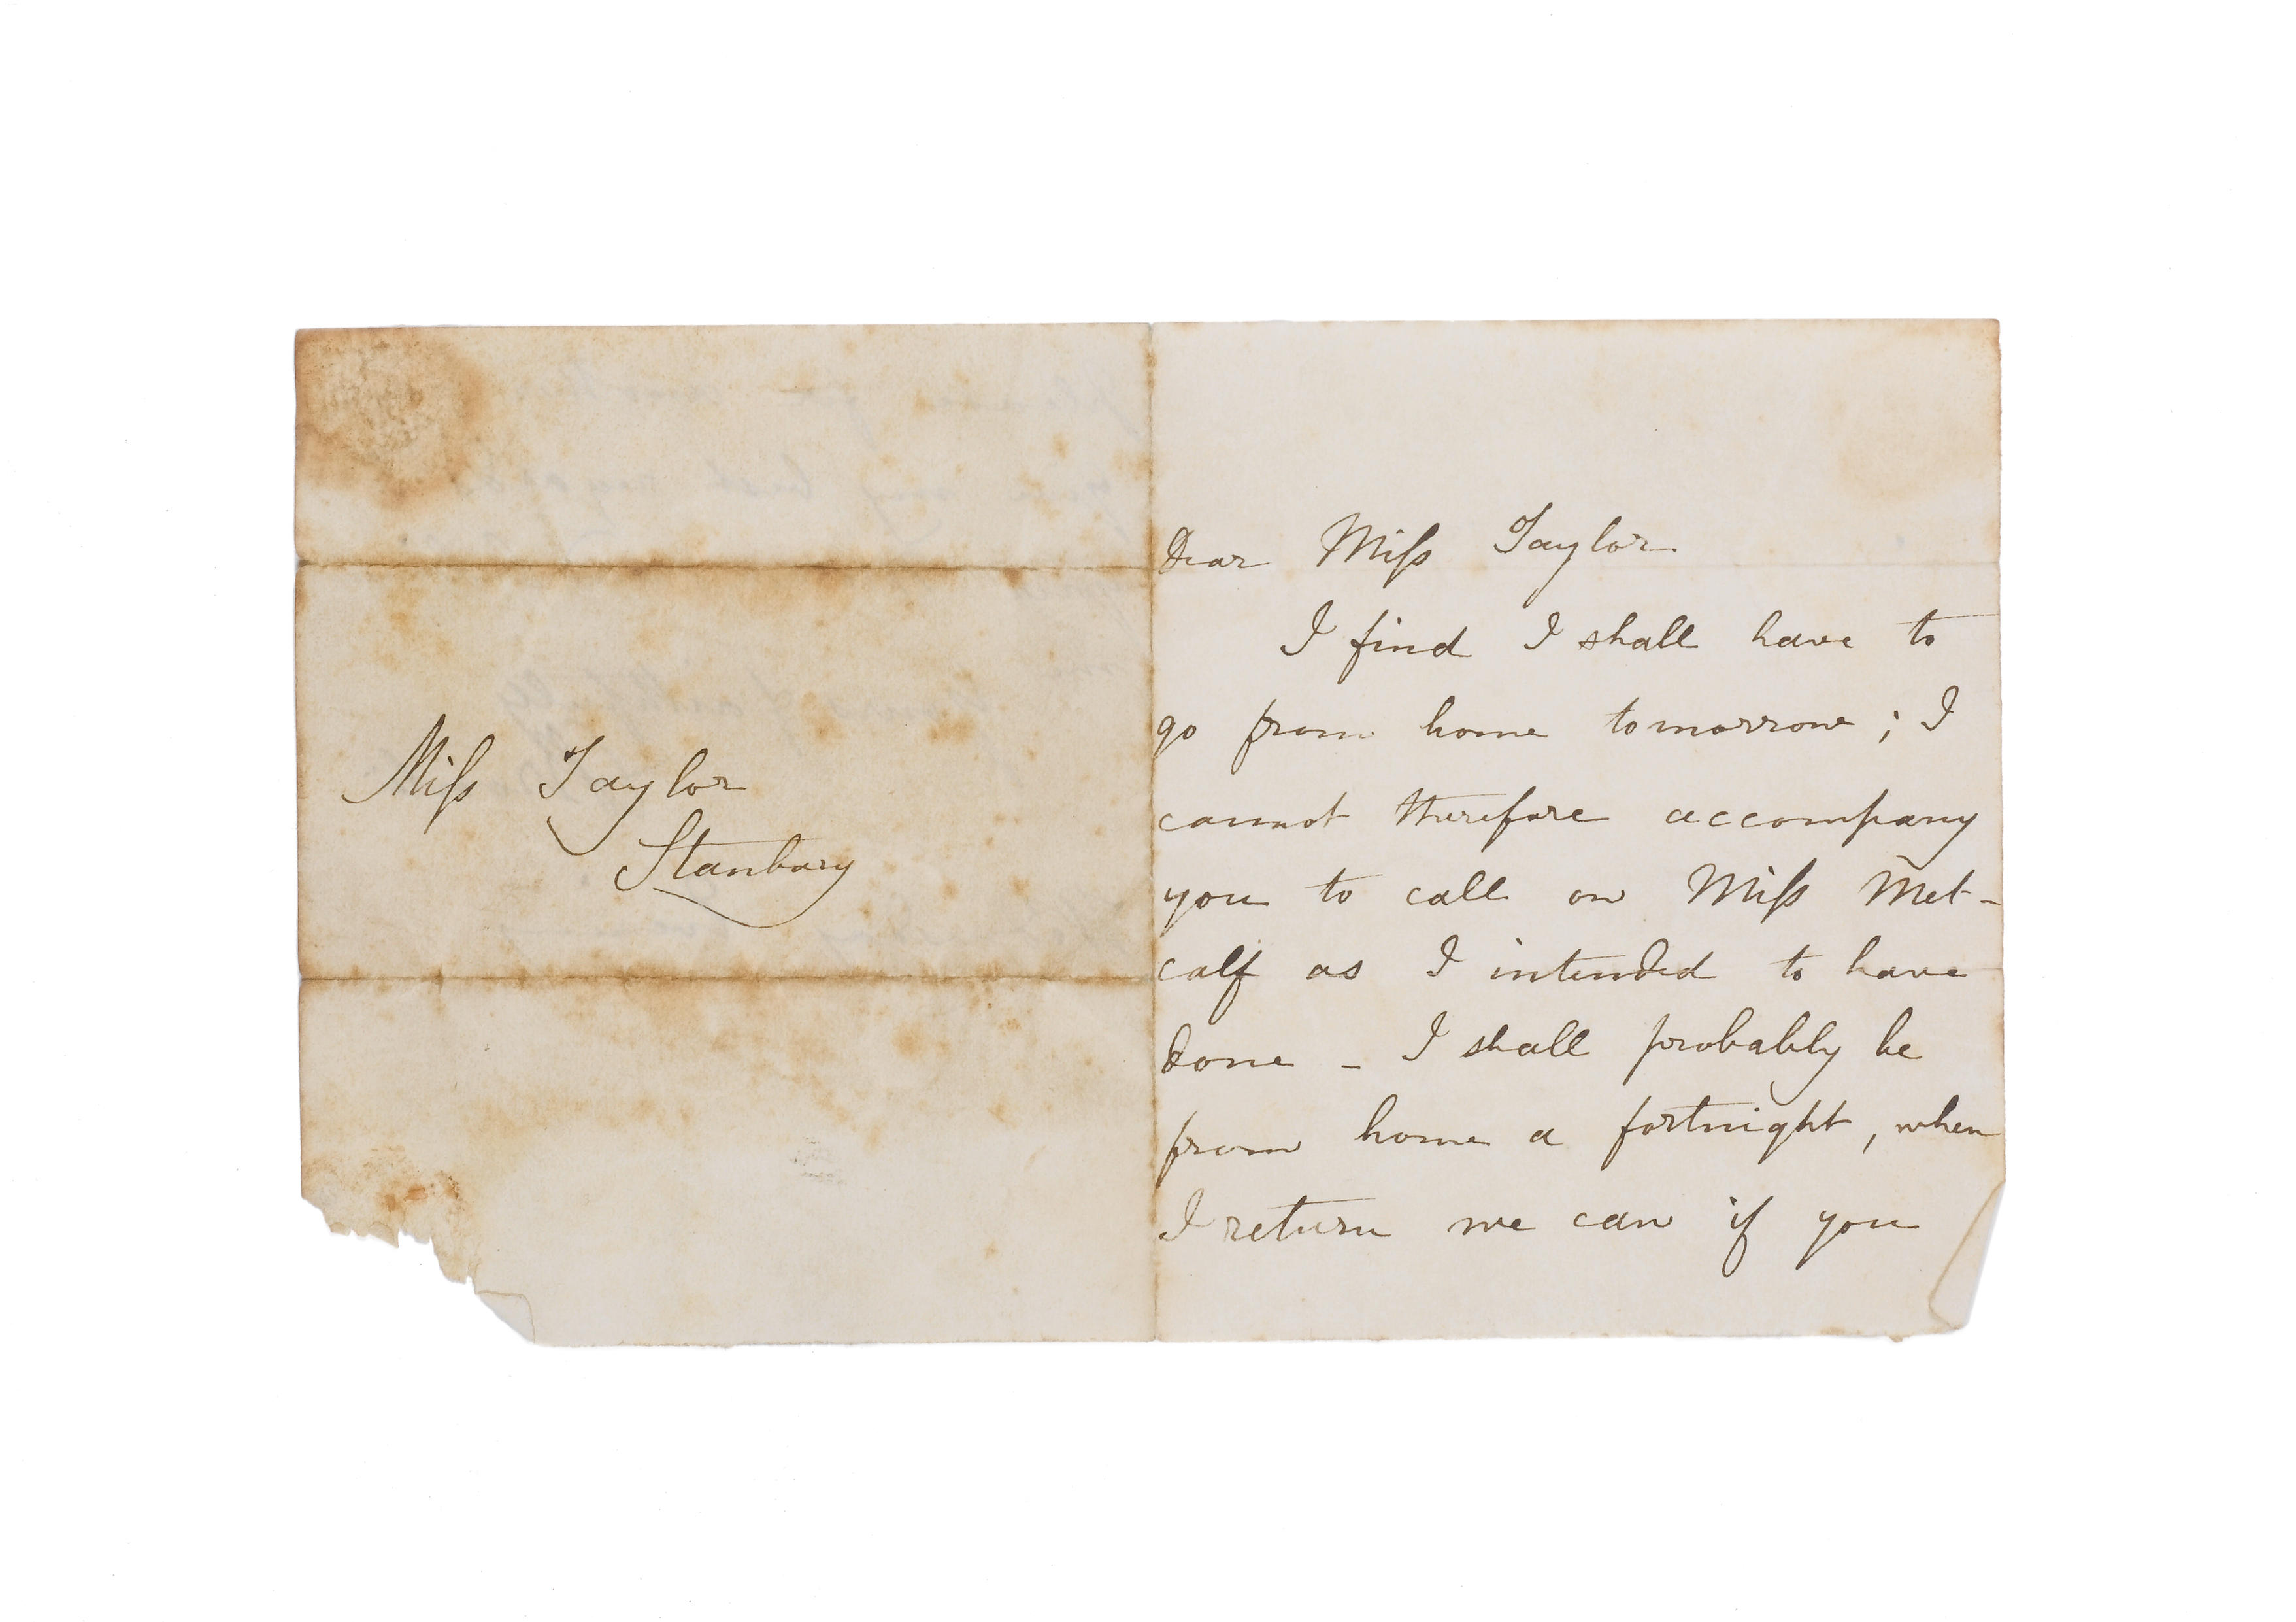 Miſs Taylor
Stanbury
Dear Miſs Taylor
I find I shall have to
go from home tomorrow; I
cannot therefore accompany
you to call on Miſs Met-
calf as I intended to have
done - I shall probably be
from home a fortnight, when
I return we can if you